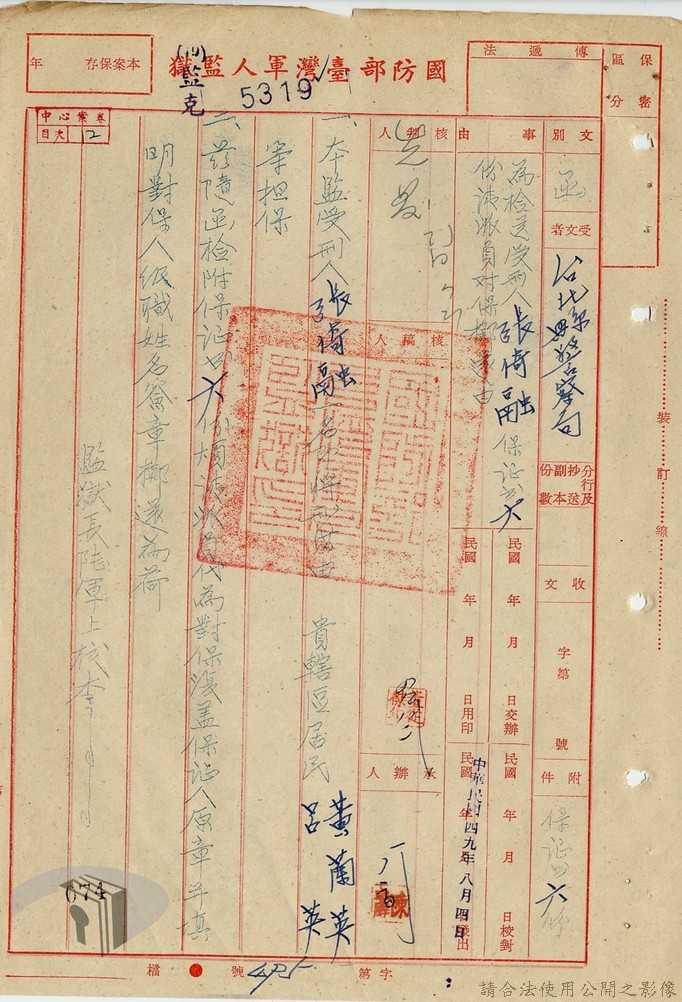 保密區分
傳遞法
國防部臺灣軍人監獄
本案保存 年
(49)監克
5319
中心案卷
目次 12
文別 函
受文者 台北縣警察局
分行及抄送副本份數
收文 字第 號
附件 保證書六份
事由 為檢送受刑人張倚融保證書六份請派員對保擲還由
民國 年 月 日交辦
民國 年 月 日校對
民國 年 月 日用印
中華民國四九年八月四日發出
核判人
核稿人
承辦人
一、本監受刑人張倚融一名即將刑滿由 貴轄區居民 黃蘭英 呂英
等担保
二、茲隨函檢附保証書六份煩請派員代為對保後蓋保証人原章并填
明對保人級職姓名簽章擲還為荷
監獄長陸軍上校李
裝訂線
檔 號 字第
674
請合法使用公開之影像